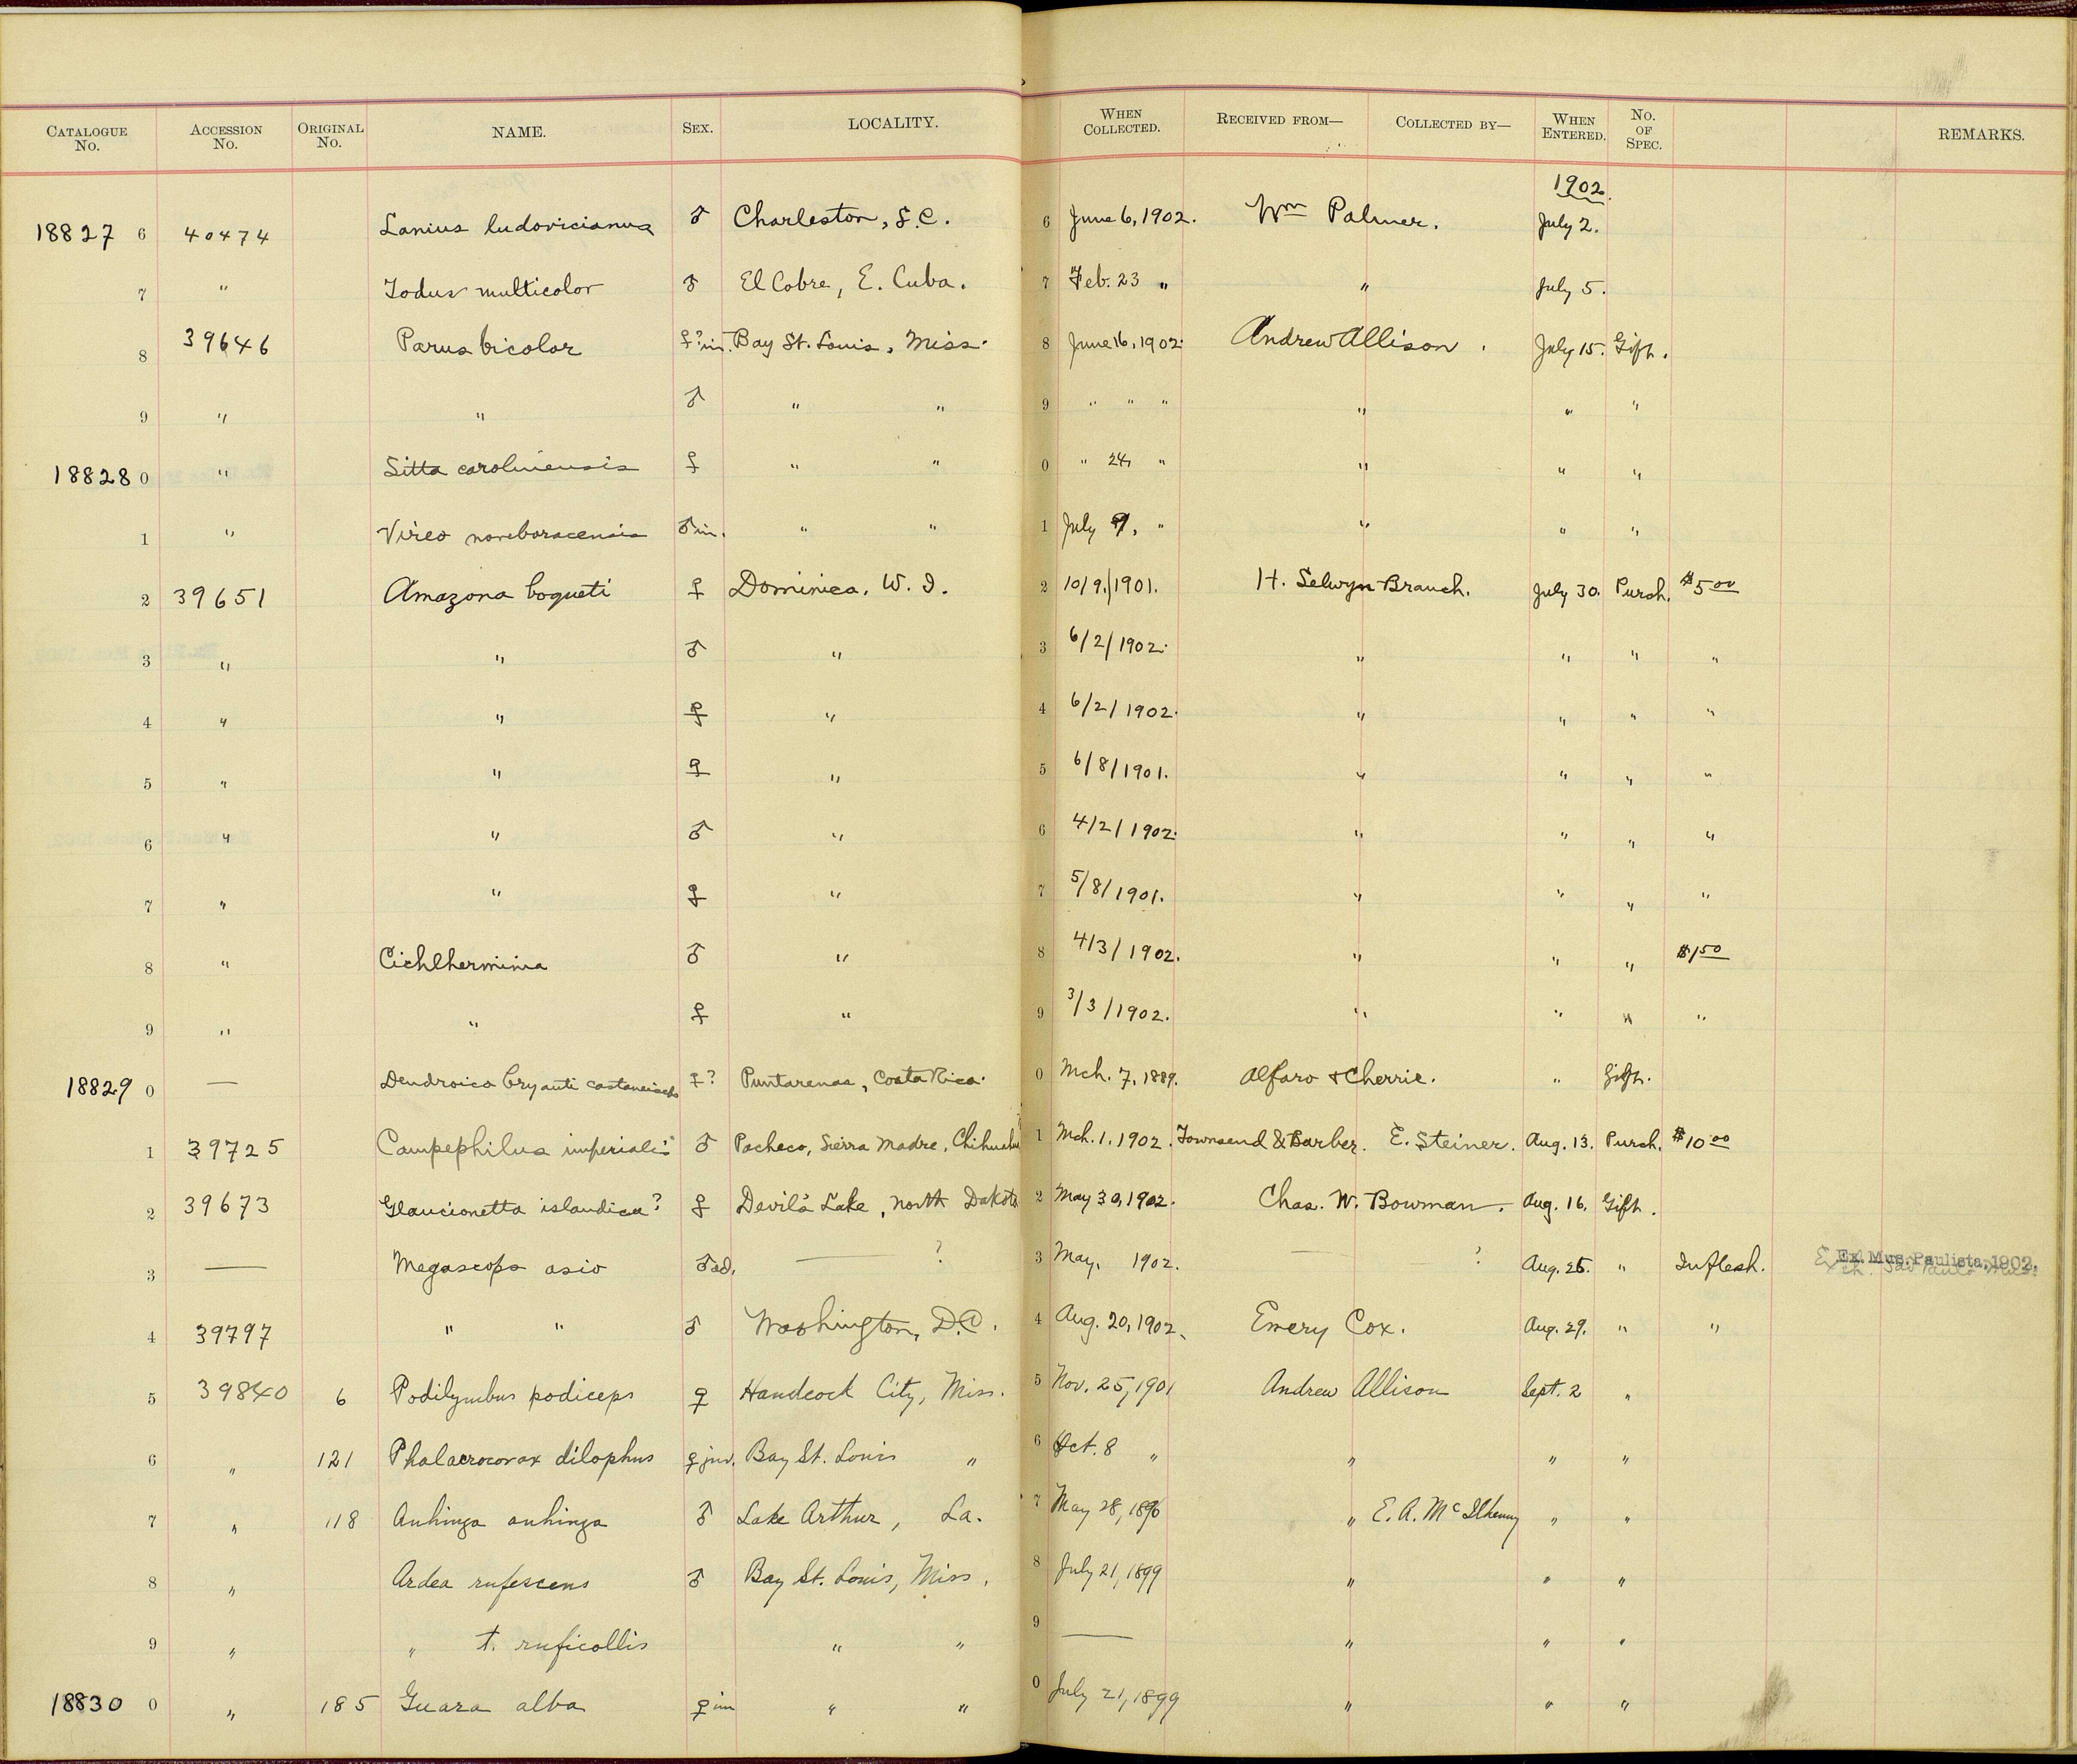 CATALOGUE No. ACCESSION No. ORIGINAL No. NAME. SEX. LOCALITY. WHEN COLLECTED. RECEIVED FROM— COLLECTED BY— WHEN ENTERED. No. OF SPEC. REMARKS.
1902.
18827 6 40474 Lanius ludovicianus ♂ Charleston, S.C. 6 June 6, 1902. Wm Palmer. July 2.
7 " Todus multicolor ♂ El Cobre, E. Cuba. 7 Feb. 23 " " July 5.
8 39646 Parus bicolor ♀? im. Bay St. Louis, Miss. 8 June 16, 1902. Andrew Allison. July 15. Gift.
9 " " ♂ " " 9 " " " " " "
18828 0 " Sitta carolinensis ♀ " " 0 " 24, " " " "
1 " Vireo noveboracensis ♂ im. " " 1 July 9, " " " "
2 39651 Amazona boqueti ♀ Dominica, W. I. 2 10/9/1901. H. Selwyn Branch. July 30. Purch. $5 00
3 " " ♂ " 3 6/2/1902. " " " "
4 " " ♀ " 4 6/2/1902. " " " "
5 " " ♀ " 5 6/8/1901. " " " "
6 " " ♂ " 6 4/2/1902. " " " "
7 " " ♀ " 7 5/8/1901. " " " "
8 " Cichlherminia ♂ " 8 4/3/1902. " " " $1 50
9 " " ♀ " 9 3/3/1902. " " " "
18829 0 — Dendroica bryanti castaneiceps ♀? Puntarenas, Costa Rica. 0 Mch. 7, 1889. Alfaro & Cherrie. " Gift.
1 39725 Campephilus imperialis ♂ Pacheco, Sierra Madre, Chihuahua 1 Mch. 1, 1902. Townsend & Barber. E. Steiner. Aug. 13. Purch. $10 00
2 39673 Glaucionetta islandica? ♀ Devil's Lake, North Dakota 2 May 30, 1902. Chas. W. Bowman. Aug. 16. Gift.
3 — Megascops asio ♂ ad. — ? 3 May, 1902. — ? Aug. 26. " In flesh. Ex. Mus. Paulista, 1902.
4 39797 " " ♂ Washington, D.C. 4 Aug. 20, 1902. Emery Cox. Aug. 29. " "
5 39840 6 Podilymbus podiceps ♀ Handcock City, Miss. 5 Nov. 25, 1901 Andrew Allison Sept. 2 "
6 " 121 Phalacrocorax dilophus ♀ juv. Bay St. Louis " 6 Oct. 8 " " " "
7 " 118 Anhinga anhinga ♂ Lake Arthur, La. 7 May 28, 1896 " E. A. McIlhenny " "
8 " Ardea rufescens ♂ Bay St. Louis, Miss. 8 July 21, 1899 " " "
9 " " t. ruficollis " " 9 — " " "
18830 0 " 185 Guara alba ♀ im " " 0 July 21, 1899 " " "